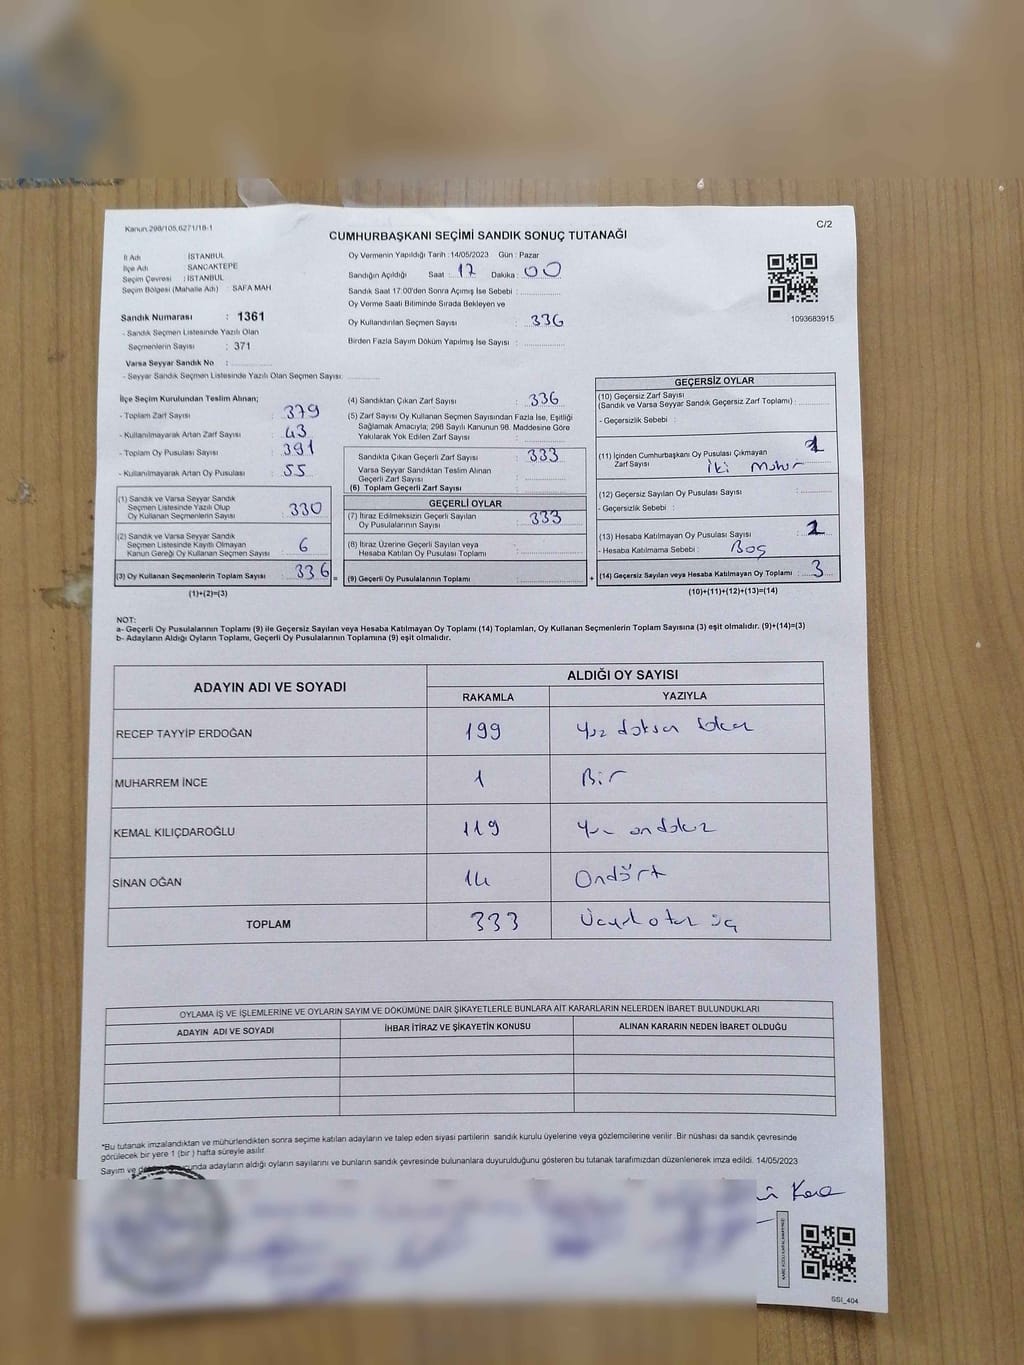 Kanun.298/105,6271/18-1
C/2
CUMHURBAŞKANI SEÇİMİ SANDIK SONUÇ TUTANAĞI
İl Adı : İSTANBUL
İlçe Adı SANCAKTEPE
Seçim Çevresi : İSTANBUL
Seçim Bölgesi (Mahalle Adı) : SAFA MAH
Oy Vermenin Yapıldığı Tarih : 14/05/2023 Gün : Pazar
Sandığın Açıldığı Saat : 17 Dakika : 00
Sandık Saat 17:00'den Sonra Açımış İse Sebebi :
Oy Verme Saati Bitiminde Sırada Bekleyen ve
Oy Kullandırılan Seçmen Sayısı : 336
Birden Fazla Sayım Döküm Yapılmış İse Sayısı :
1093683915
Sandık Numarası : 1361
- Sandık Seçmen Listesinde Yazılı Olan
Seçmenlerin Sayısı : 371
Varsa Seyyar Sandık No :
- Seyyar Sandık Seçmen Listesinde Yazılı Olan Seçmen Sayısı:
İlçe Seçim Kurulundan Teslim Alınan;
- Toplam Zarf Sayısı : 379
- Kullanılmayarak Artan Zarf Sayısı : 43
- Toplam Oy Pusulası Sayısı : 391
- Kullanılmayarak Artan Oy Pusulası : 55
(1) Sandık ve Varsa Seyyar Sandık
Seçmen Listesinde Yazılı Olup
Oy Kullanan Seçmenlerin Sayısı : 330
(2) Sandık ve Varsa Seyyar Sandık
Seçmen Listesinde Kayıtlı Olmayan
Kanun Gereği Oy Kullanan Seçmen Sayısı : 6
(3) Oy Kullanan Seçmenlerin Toplam Sayısı : 336 =
(1)+(2)=(3)
(4) Sandıktan Çıkan Zarf Sayısı : 336
(5) Zarf Sayısı Oy Kullanan Seçmen Sayısından Fazla İse, Eşitliği
Sağlamak Amacıyla; 298 Sayılı Kanunun 98. Maddesine Göre
Yakılarak Yok Edilen Zarf Sayısı :
Sandıkta Çıkan Geçerli Zarf Sayısı : 333
Varsa Seyyar Sandıktan Teslim Alınan
Geçerli Zarf Sayısı :
(6) Toplam Geçerli Zarf Sayısı :
GEÇERLİ OYLAR
(7) İtiraz Edilmeksizin Geçerli Sayılan
Oy Pusulalarının Sayısı : 333
(8) İtiraz Üzerine Geçerli Sayılan veya
Hesaba Katılan Oy Pusulası Toplamı :
(9) Geçerli Oy Pusulalarının Toplamı : +
GEÇERSİZ OYLAR
(10) Geçersiz Zarf Sayısı
(Sandık ve Varsa Seyyar Sandık Geçersiz Zarf Toplamı) :
- Geçersizlik Sebebi :
(11) İçinden Cumhurbaşkanı Oy Pusulası Çıkmayan
Zarf Sayısı : İki Mühür
(12) Geçersiz Sayılan Oy Pusulası Sayısı :
- Geçersizlik Sebebi :
(13) Hesaba Katılmayan Oy Pusulası Sayısı :
- Hesaba Katılmama Sebebi : Boş
(14) Geçersiz Sayılan veya Hesaba Katılmayan Oy Toplamı : 3
(10)+(11)+(12)+(13)=(14)
NOT:
a- Geçerli Oy Pusulalarının Toplamı (9) ile Geçersiz Sayılan veya Hesaba Katılmayan Oy Toplamı (14) Toplamları, Oy Kullanan Seçmenlerin Toplam Sayısına (3) eşit olmalıdır. (9)+(14)=(3)
b- Adayların Aldığı Oyların Toplamı, Geçerli Oy Pusulalarının Toplamına (9) eşit olmalıdır.
ADAYIN ADI VE SOYADI
ALDIĞI OY SAYISI
RAKAMLA YAZIYLA
RECEP TAYYİP ERDOĞAN 199 Yüz doksan dokuz
MUHARREM İNCE 1 Bir
KEMAL KILIÇDAROĞLU 119 Yüz ondokuz
SİNAN OĞAN 14 Ondört
TOPLAM 333 Üçyüz otuz üç
OYLAMA İŞ VE İŞLEMLERİNE VE OYLARIN SAYIM VE DÖKÜMÜNE DAİR ŞİKAYETLERLE BUNLARA AİT KARARLARIN NELERDEN İBARET BULUNDUKLARI
ADAYIN ADI VE SOYADI İHBAR İTİRAZ VE ŞİKAYETİN KONUSU ALINAN KARARIN NEDEN İBARET OLDUĞU
*Bu tutanak imzalandıktan ve mühürlendikten sonra seçime katılan adayların ve talep eden siyasi partilerin sandık kurulu üyelerine veya gözlemcilerine verilir .Bir nüshası da sandık çevresinde
görülecek bir yere 1 (bir ) hafta süreyle asılır.
Sayım ve adayların aldığı oyların sayılarını ve bunların sandık çevresinde bulunanlara duyurulduğunu gösteren bu tutanak tarafımızdan düzenlenerek imza edildi. 14/05/2023
Kara
SSI_404